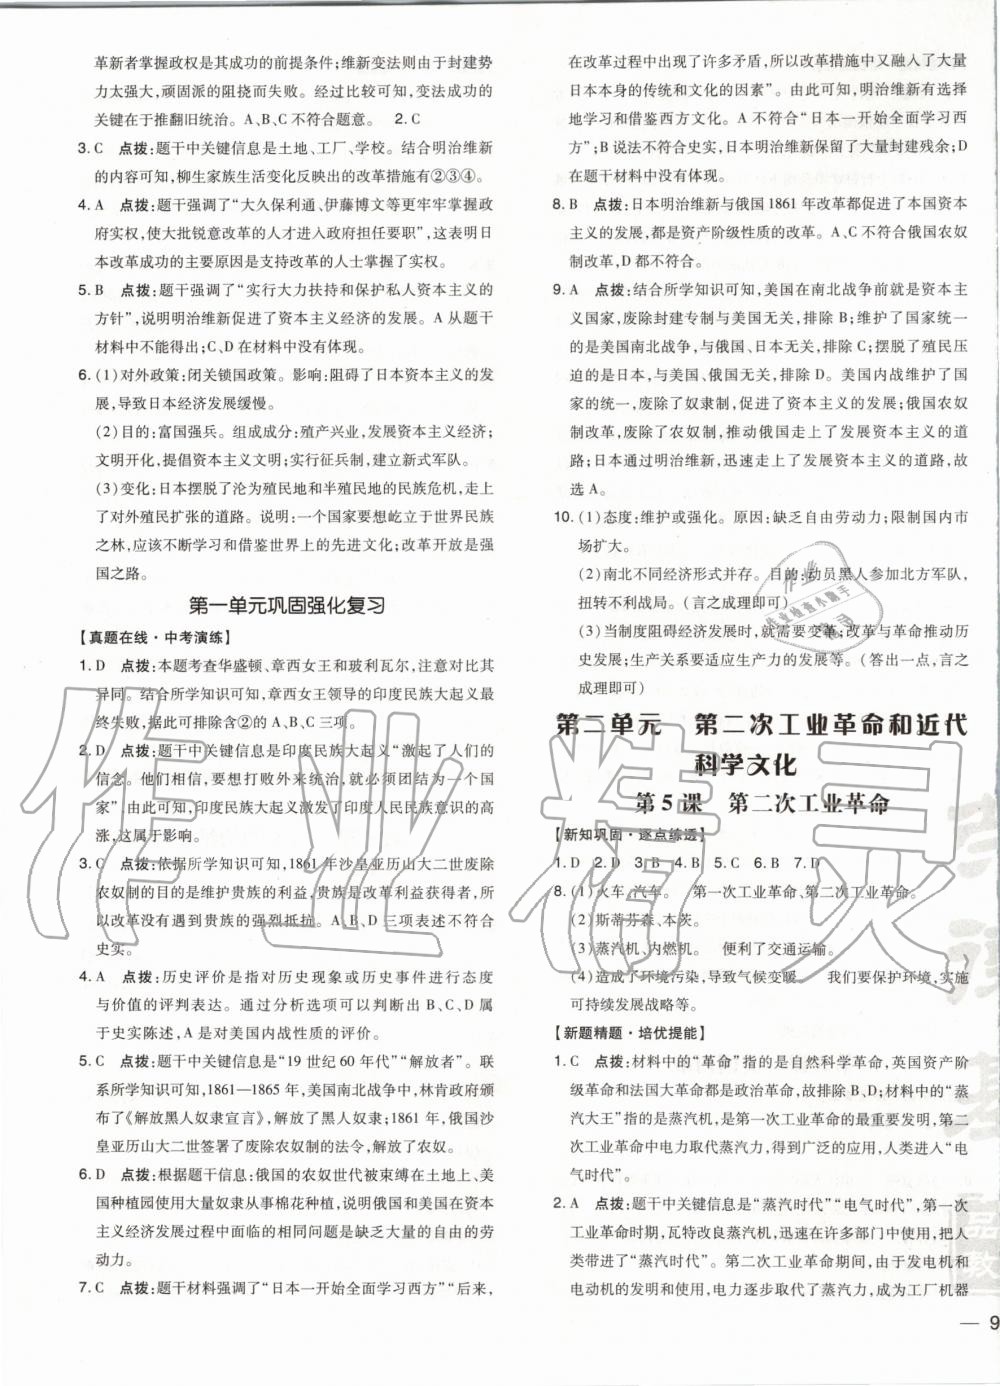 革新者掌握政权是其成功的前提条件；维新变法则由于封建势
力太强大，顽固派的阻挠而失败。经过比较可知，变法成功的
关键在于推翻旧统治。A、B、C 不符合题意。　2. C
3. C　点拨：题干中关键信息是土地、工厂、学校。结合明治维新
的内容可知，柳生家族生活变化反映出的改革措施有②③④。
4. A　点拨：题干强调了“大久保利通、伊藤博文等更牢牢掌握政
府实权，使大批锐意改革的人才进入政府担任要职”，这表明日
本改革成功的主要原因是支持改革的人士掌握了实权。
5. B　点拨：题干强调了“实行大力扶持和保护私人资本主义的
方针”，说明明治维新促进了资本主义经济的发展。A 从题干
材料中不能得出；C、D 在材料中没有体现。
6. (1)对外政策：闭关锁国政策。影响：阻碍了日本资本主义的发
展，导致日本经济发展缓慢。
(2)目的：富国强兵。组成成分：殖产兴业，发展资本主义经济；
文明开化，提倡资本主义文明；实行征兵制，建立新式军队。
(3)变化：日本摆脱了沦为殖民地和半殖民地的民族危机，走上
了对外殖民扩张的道路。说明：一个国家要想屹立于世界民族
之林，应该不断学习和借鉴世界上的先进文化；改革开放是强
国之路。
第一单元巩固强化复习
【真题在线·中考演练】
1. D　点拨：本题考查华盛顿、章西女王和玻利瓦尔，注意比较其
异同。结合所学知识可知，章西女王领导的印度民族大起义最
终失败，据此可排除含②的 A、B、C 三项。
2. D　点拨：题干中关键信息是印度民族大起义“激起了人们的
信念。他们相信，要想摆脱外来统治，就必须团结成为一个国
家”，由此可知，印度民族大起义激发了印度人民民族意识的觉
醒，这属于影响。
3. C　点拨：依据所学知识可知，1861 年沙皇亚历山大二世废除
农奴制的目的是维护贵族的利益，贵族从改革中获得利益，所
以改革没有遇到贵族的强烈抵抗。A、B、D 三项表述不符合
史实。
4. A　点拨：历史评价是指对历史现象或历史事件进行态度
与价值的评判表达。通过分析选项可以判断出 B、C、D 属
于史实陈述，A 是对美国内战性质的评价。
5. C　点拨：题干中关键信息是“19 世纪 60 年代”“解放者”。联
系所学知识可知，1861—1865 年，美国南北战争中，林肯政府颁
布了《解放黑人奴隶宣言》，解放了黑人奴隶；1861 年，俄国沙
皇亚历山大二世签署了废除农奴制的法令，解放了农奴。
6. D　点拨：根据题干信息：俄国的农奴世代被束缚在土地上、美
国种植园使用大量奴隶从事棉花种植，说明俄国和美国在资本
主义经济发展过程中面临的相同问题是缺乏大量的自由的劳
动力。
7. C　点拨：题干材料强调了“日本一开始全面学习西方”“后来，
在改革过程中出现了许多矛盾，所以改革措施中又融入了大量
日本本身的传统和文化的因素”。由此可知，明治维新有选择
地学习和借鉴西方文化。A 不符合“日本一开始全面学习西
方”；B 说法不符合史实，日本明治维新保留了大量封建残余；D
在题干材料中没有体现。
8. B　点拨：日本明治维新与俄国 1861 年改革都促进了本国资本
主义的发展，都是资产阶级性质的改革。A、C 不符合俄国农奴
制改革，D 都不符合。
9. A　点拨：结合所学知识可知，美国在南北战争前就是资本主
义国家，废除封建专制与美国无关，排除 B；维护了国家统一
的是美国南北战争，与俄国、日本无关，排除 C；摆脱了殖民压
迫的是日本，与美国、俄国无关，排除 D。美国内战维护了国
家的统一，废除了奴隶制，促进了资本主义的发展；俄国农奴
制改革，废除了农奴制，推动俄国走上了发展资本主义的道
路；日本通过明治维新，迅速走上了发展资本主义的道路，故
选 A。
10. (1)态度：维护或强化。原因：缺乏自由劳动力；限制国内市
场扩大。
(2)南北不同经济形式并存。目的：动员黑人参加北方军队，
扭转不利战局。(言之成理即可)
(3)当制度阻碍经济发展时，就需要变革；改革与革命推动历
史发展；生产关系要适应生产力的发展等。(答出一点，言之
成理即可)
第二单元　第二次工业革命和近代
科学文化
第 5 课　第二次工业革命
【新知巩固·逐点练透】
1. D　2. D　3. B　4. B　5. C　6. B　7. D
8. (1)火车、汽车。　第一次工业革命、第二次工业革命。
(2)斯蒂芬森、本茨。
(3)蒸汽机、内燃机。　便利了交通运输。
(4)造成了环境污染，导致气候变暖。　我们要保护环境，实施
可持续发展战略等。
【新题精题·培优提能】
1. C　点拨：材料中的“革命”指的是自然科学革命，英国资产阶
级革命和法国大革命都是政治革命，故排除 B、D；材料中的“蒸
汽大王”指的是蒸汽机，是第一次工业革命的最重要发明，第二
次工业革命中电力取代蒸汽力，得到广泛的应用，人类进入“电
气时代”。
2. A　点拨：题干中关键信息是“蒸汽时代”“电气时代”。第一次
工业革命时期，瓦特改良蒸汽机，迅速在许多部门中使用，把人
类带进了“蒸汽时代”。第二次工业革命期间，由于发电机和
电动机的发明和使用，电力逐步取代了蒸汽力，成为工厂机器
— 9
作业精灵
作业检查小助手